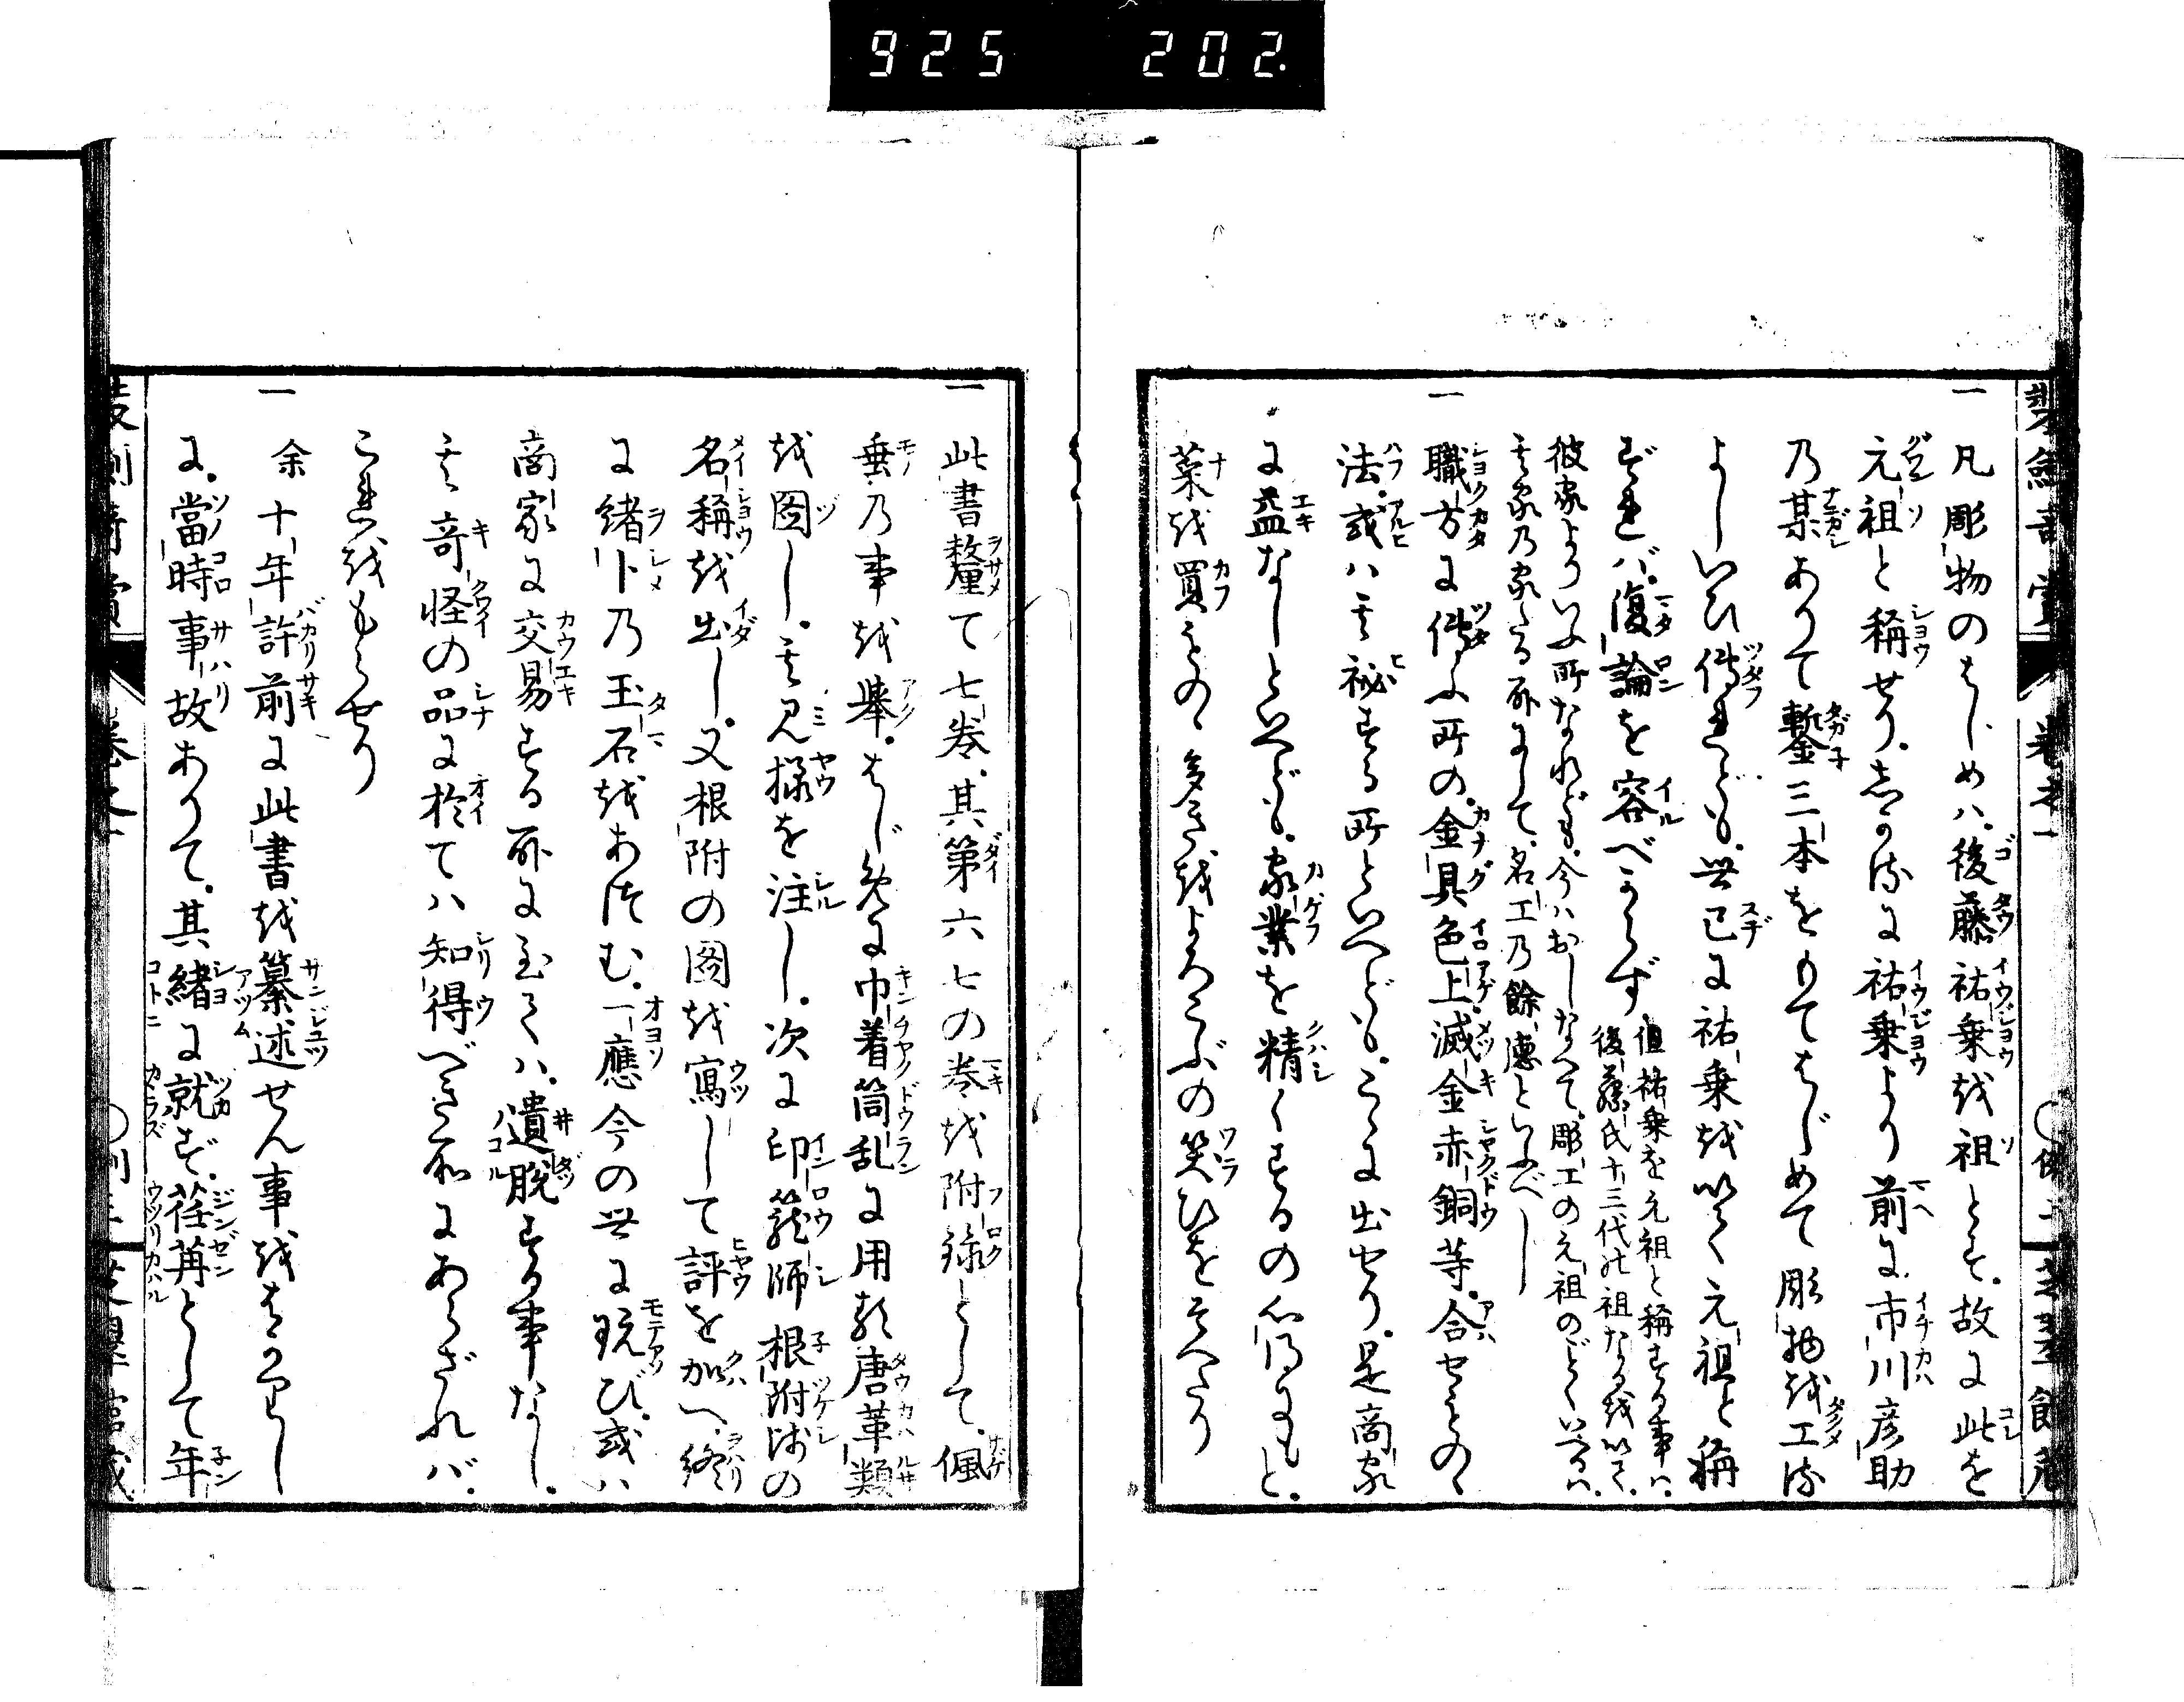 925 202.
一 凡彫物のはじめハ。後藤祐乗越祖とす。故に此を
元祖と稱せり。しかるに祐乗より前に市川彦助
乃某ありて鏨三本をもてはじめて彫物越工る
よしいひ傳れども。世已に祐乗越以て元祖と稱
ずれバ。復論を容べからず
但祐乗を元祖と稱する事ハ。
後藤氏十三代の祖なる越以て。
彼家よりいふ所なれども。今ハおしなべて。彫工の元祖のごとくいへるハ。
其家乃家たる所にして。名工乃餘徳といふべし
一 職方に傳ふ所の。金具色上滅金赤銅等。合せもの
法。或ハ其祕する所といへども。こゝに出せり。是商家
に益なしといへども。家業を精くするの心得にもと。
菜越買もの。多き越よろこぶの笑ひをそへたり
一 此書釐て七卷。其第六七の卷越附録として。佩
垂乃事越舉。はじめに巾着筒乱に用る唐革類
越圖し。其見樣を注し。次に印籠師根附師の
名稱越出し。又根附の圖越寫して評を加へ。終
に緒〆乃玉石越あつむ。一應今の世に玩び。或ハ
商家に交易する所に至てハ。遺脱する事なし。
其奇怪の品に於てハ知得べき所にあらざれバ。
これ越もらせり
一 余十年許前に此書越纂述せん事越はかりし
に。當時事故ありて。其緒に就ず。荏苒として年